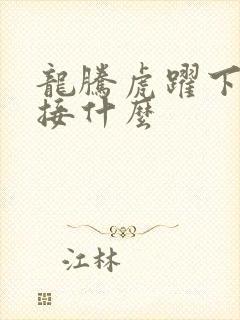 龍騰虎躍下
接什麼
江林